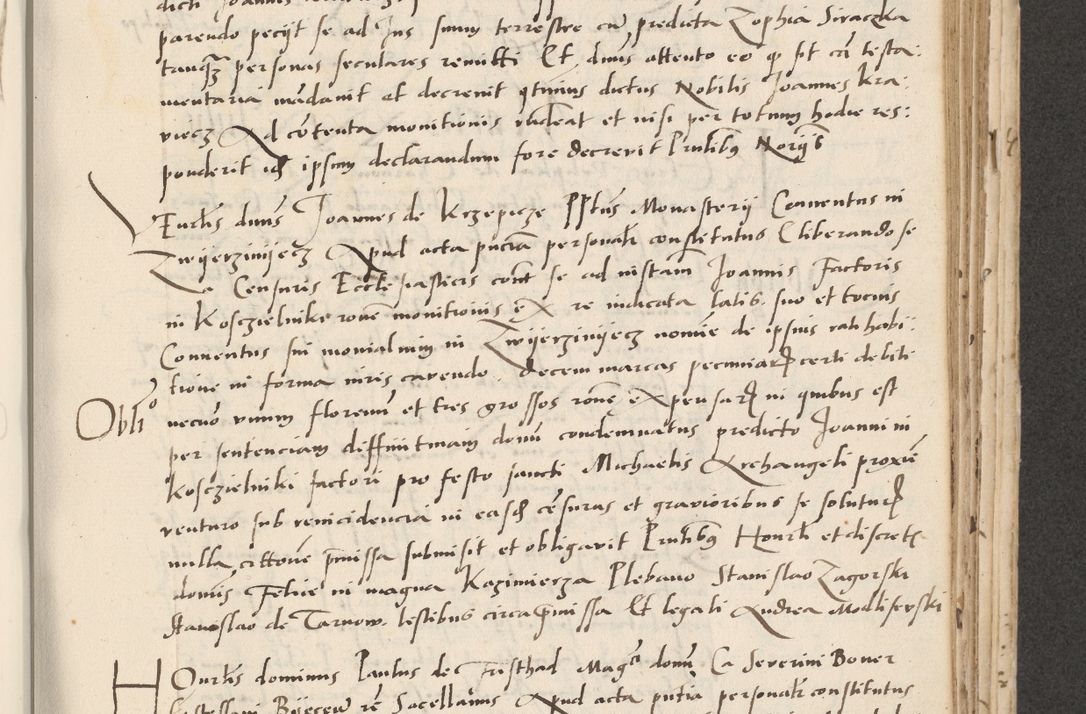 parendo pecijt se ad Jus suum terrestre cu predicta Zophia Siraczka
tanqz personas seculares remitti Et dnus attento eo q sit ca testa:
mentaria madauit et decreuit qtinus dictus Nobilis Joannes Kra:
viecz Ad cotenta monitionis rudeat et nisi per totum hodie res:
ponderit id ipsum declarandum fore decreuit Pntibus Norijs
Venrlis dnus Joannes de Krzepicze Ppitus Monasterij Conuentus in
Zwijerzinijecz Apud acta pncia personalr constitutus Cliberando se
a Censuris Ecclesiasticis cont se ad instam Joannis Factoris
in Kosczielnike rone monitionis ex re iudicata latis suo et tocius
Conuentus sui monialium in Zwijerzinijecz nomie de ipsius ratihabi:
tione in forma iuris cauendo decem marcas pecuniar certi debiti
Oblio
necno vnum florenu et tres grossos rone expensar in quibus est
per sentenciam diffinitiuam domu condemnatus predicto Joanni in
Kosczielniki factori pro festo sancti Michaelis Archangeli proxie
venturo sub reincidencia in easd censuras et grauioribus se solutur
nulla cittone pmissa submisit et obligauit Pntibus Honrli et discretis
domis Felice in magna Kazimierza Plebano Stanislao Zagorski
Stanislao de Tarnow testibus circa pmissa Et legali Andrea Modlisewski
Honrlis dominus Paulus de Magci domi Ca Seuerini Boner
Castellani Bijecen re Sacellanus Apud acta putia personalr constitutus